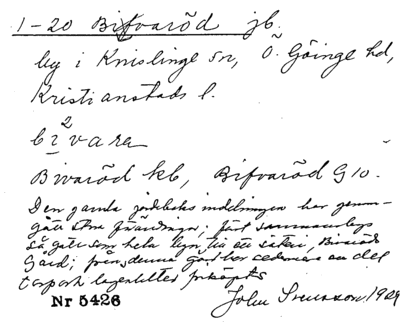 1-20 Bifvaröd jb.
by i Knislinge sn, Ö. Göinge hd,
Kristianstads l.
bi²vara
Bivaröd kb, Bifvaröd G 10.
Den gamla jordeboks indelningen har genom-
gått stora förändringar; först sammanlags
så gott som hela byn, till ett säteri, Bivaröds
Gård; från denna gård har sedermera en del
torp och lägenheter friköpts
Nr 5426 John Svensson 1929